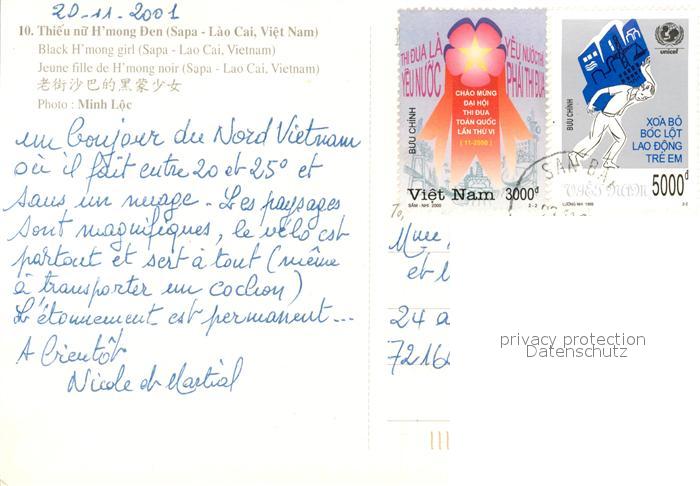 20-11-2001
10. Thiếu nữ H'mong Đen (Sapa - Lào Cai, Việt Nam)
Black H'mong girl (Sapa - Lao Cai, Vietnam)
Jeune fille de H'mong noir (Sapa - Lao Cai, Vietnam)
老街沙巴的黑蒙少女
Photo : Minh Lộc
un bonjour du Nord Vietnam
où il fait entre 20 et 25° et
sans un nuage. Les paysages
sont magnifiques, le vélo est
partout et sert à tout (même
à transporter un cochon)
L'étonnement est permanent...
A bientôt
Nicole et Martial
THI ĐUA LÀ
YÊU NƯỚC
YÊU NƯỚC THÌ
PHẢI THI ĐUA
CHÀO MỪNG
ĐẠI HỘI
THI ĐUA
TOÀN QUỐC
LẦN THỨ VI
(11-2000)
BƯU CHÍNH
Việt Nam 3000đ
SÂM - NHI 2000 2-2
unicef
BƯU CHÍNH
XOÁ BỎ
BÓC LỘT
LAO ĐỘNG
TRẺ EM
VIỆT NAM 5000đ
2-2
To,
Mme,
et
24 a
7216
privacy protection
Datenschutz